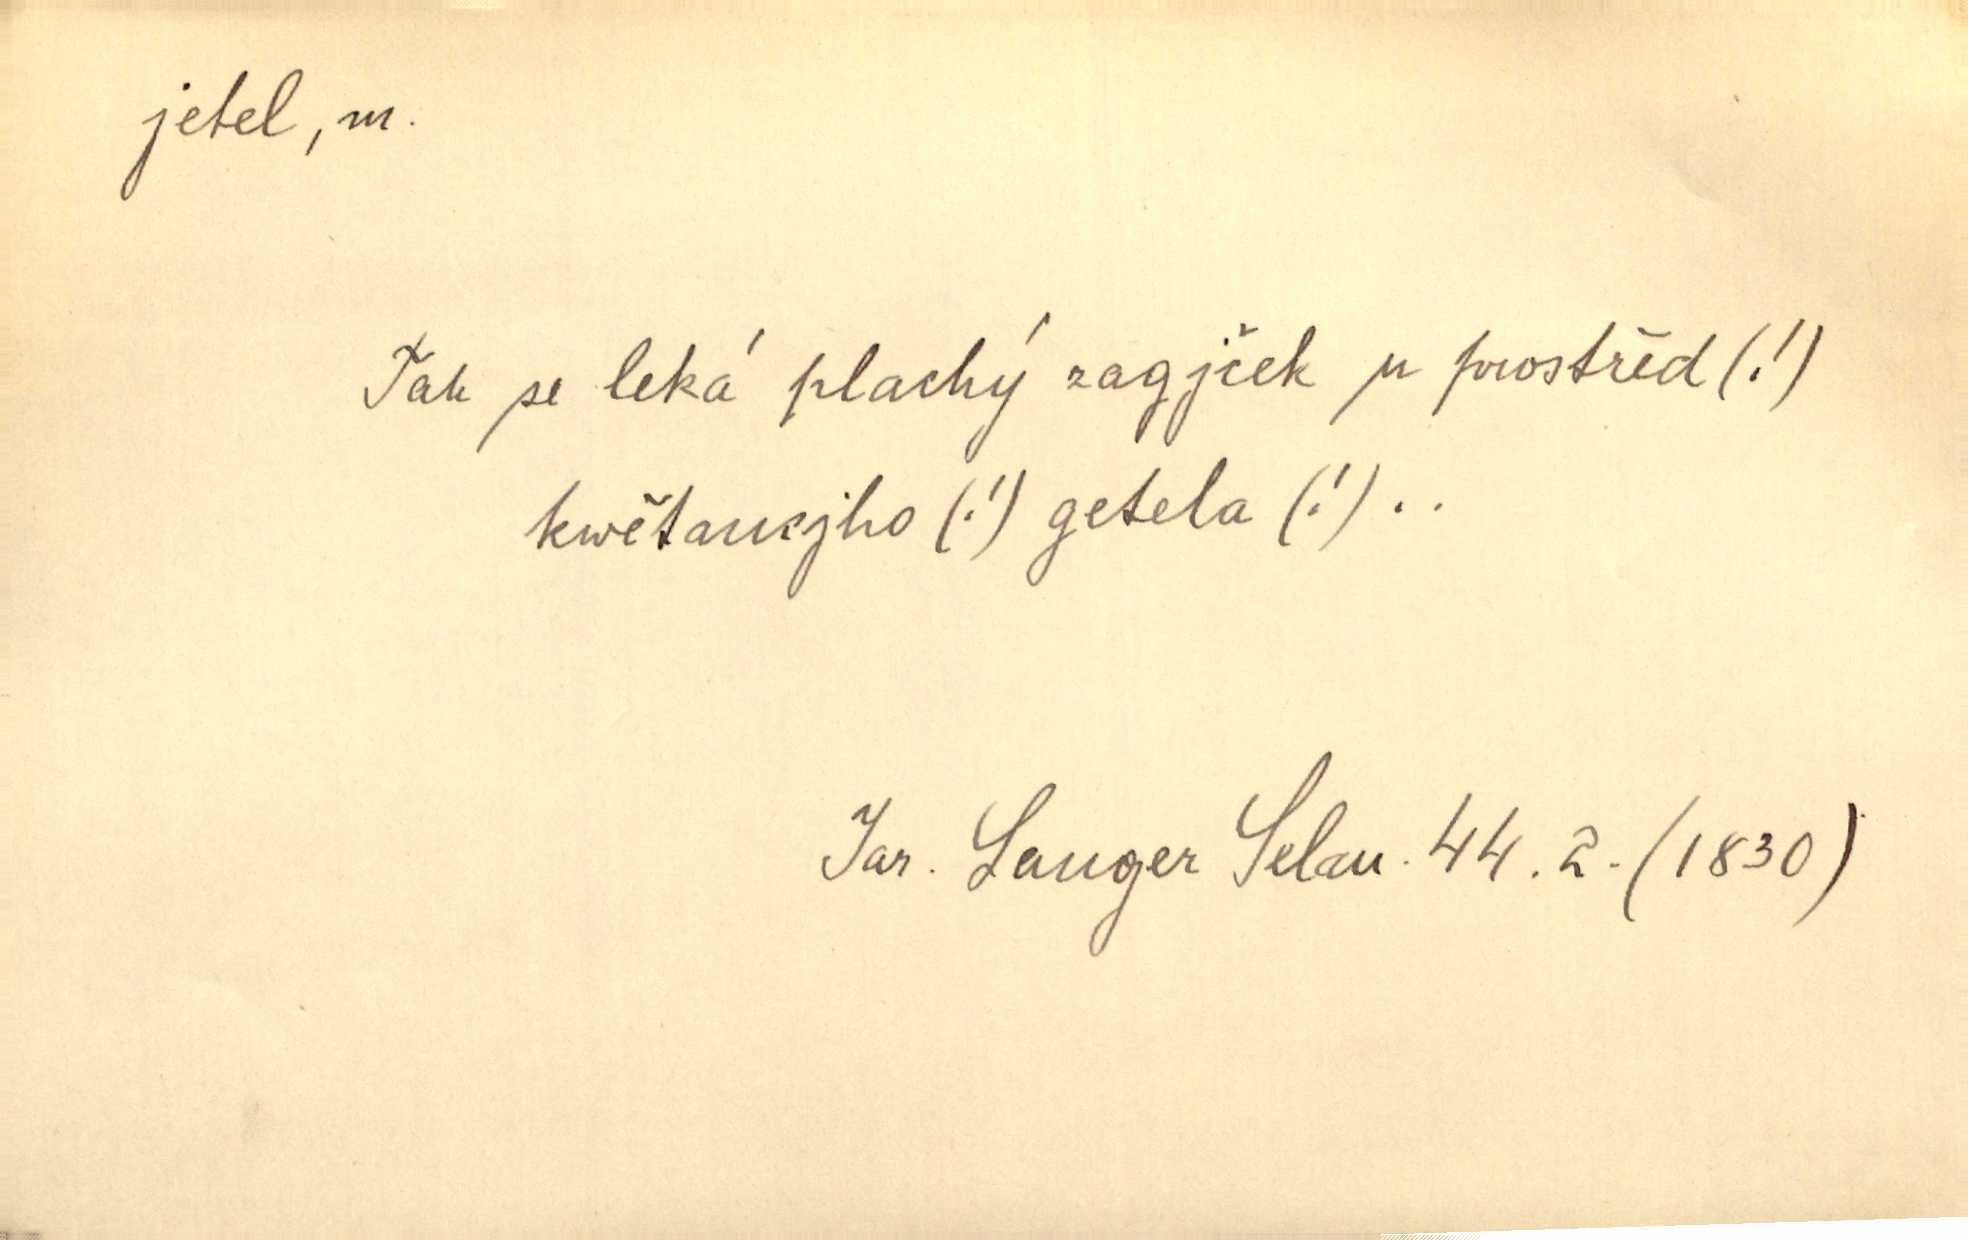 jetel, m.
Tak se leká plachý zagjček u prostřěd (!)
kwětaucjho (!) getela (!) ..
Jar. Langer Selan. 44. 2. (1830)